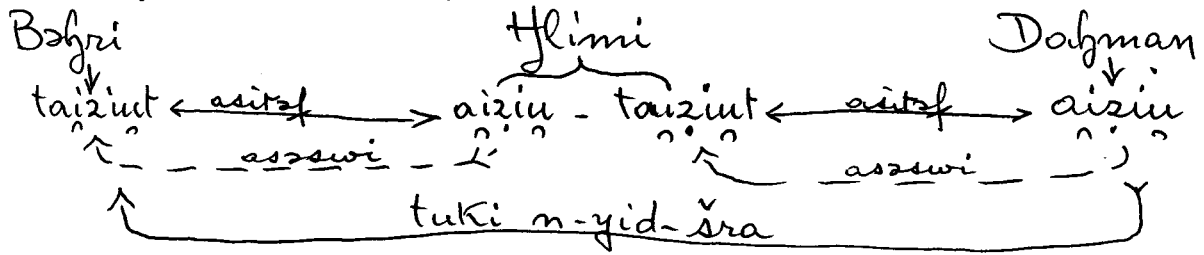 Bəḥri Ḥlimi Daḥman
taiziut asitəf aiziu - taiziut asitəf aiziu
asəswi asəswi
tuki n-yid-šra